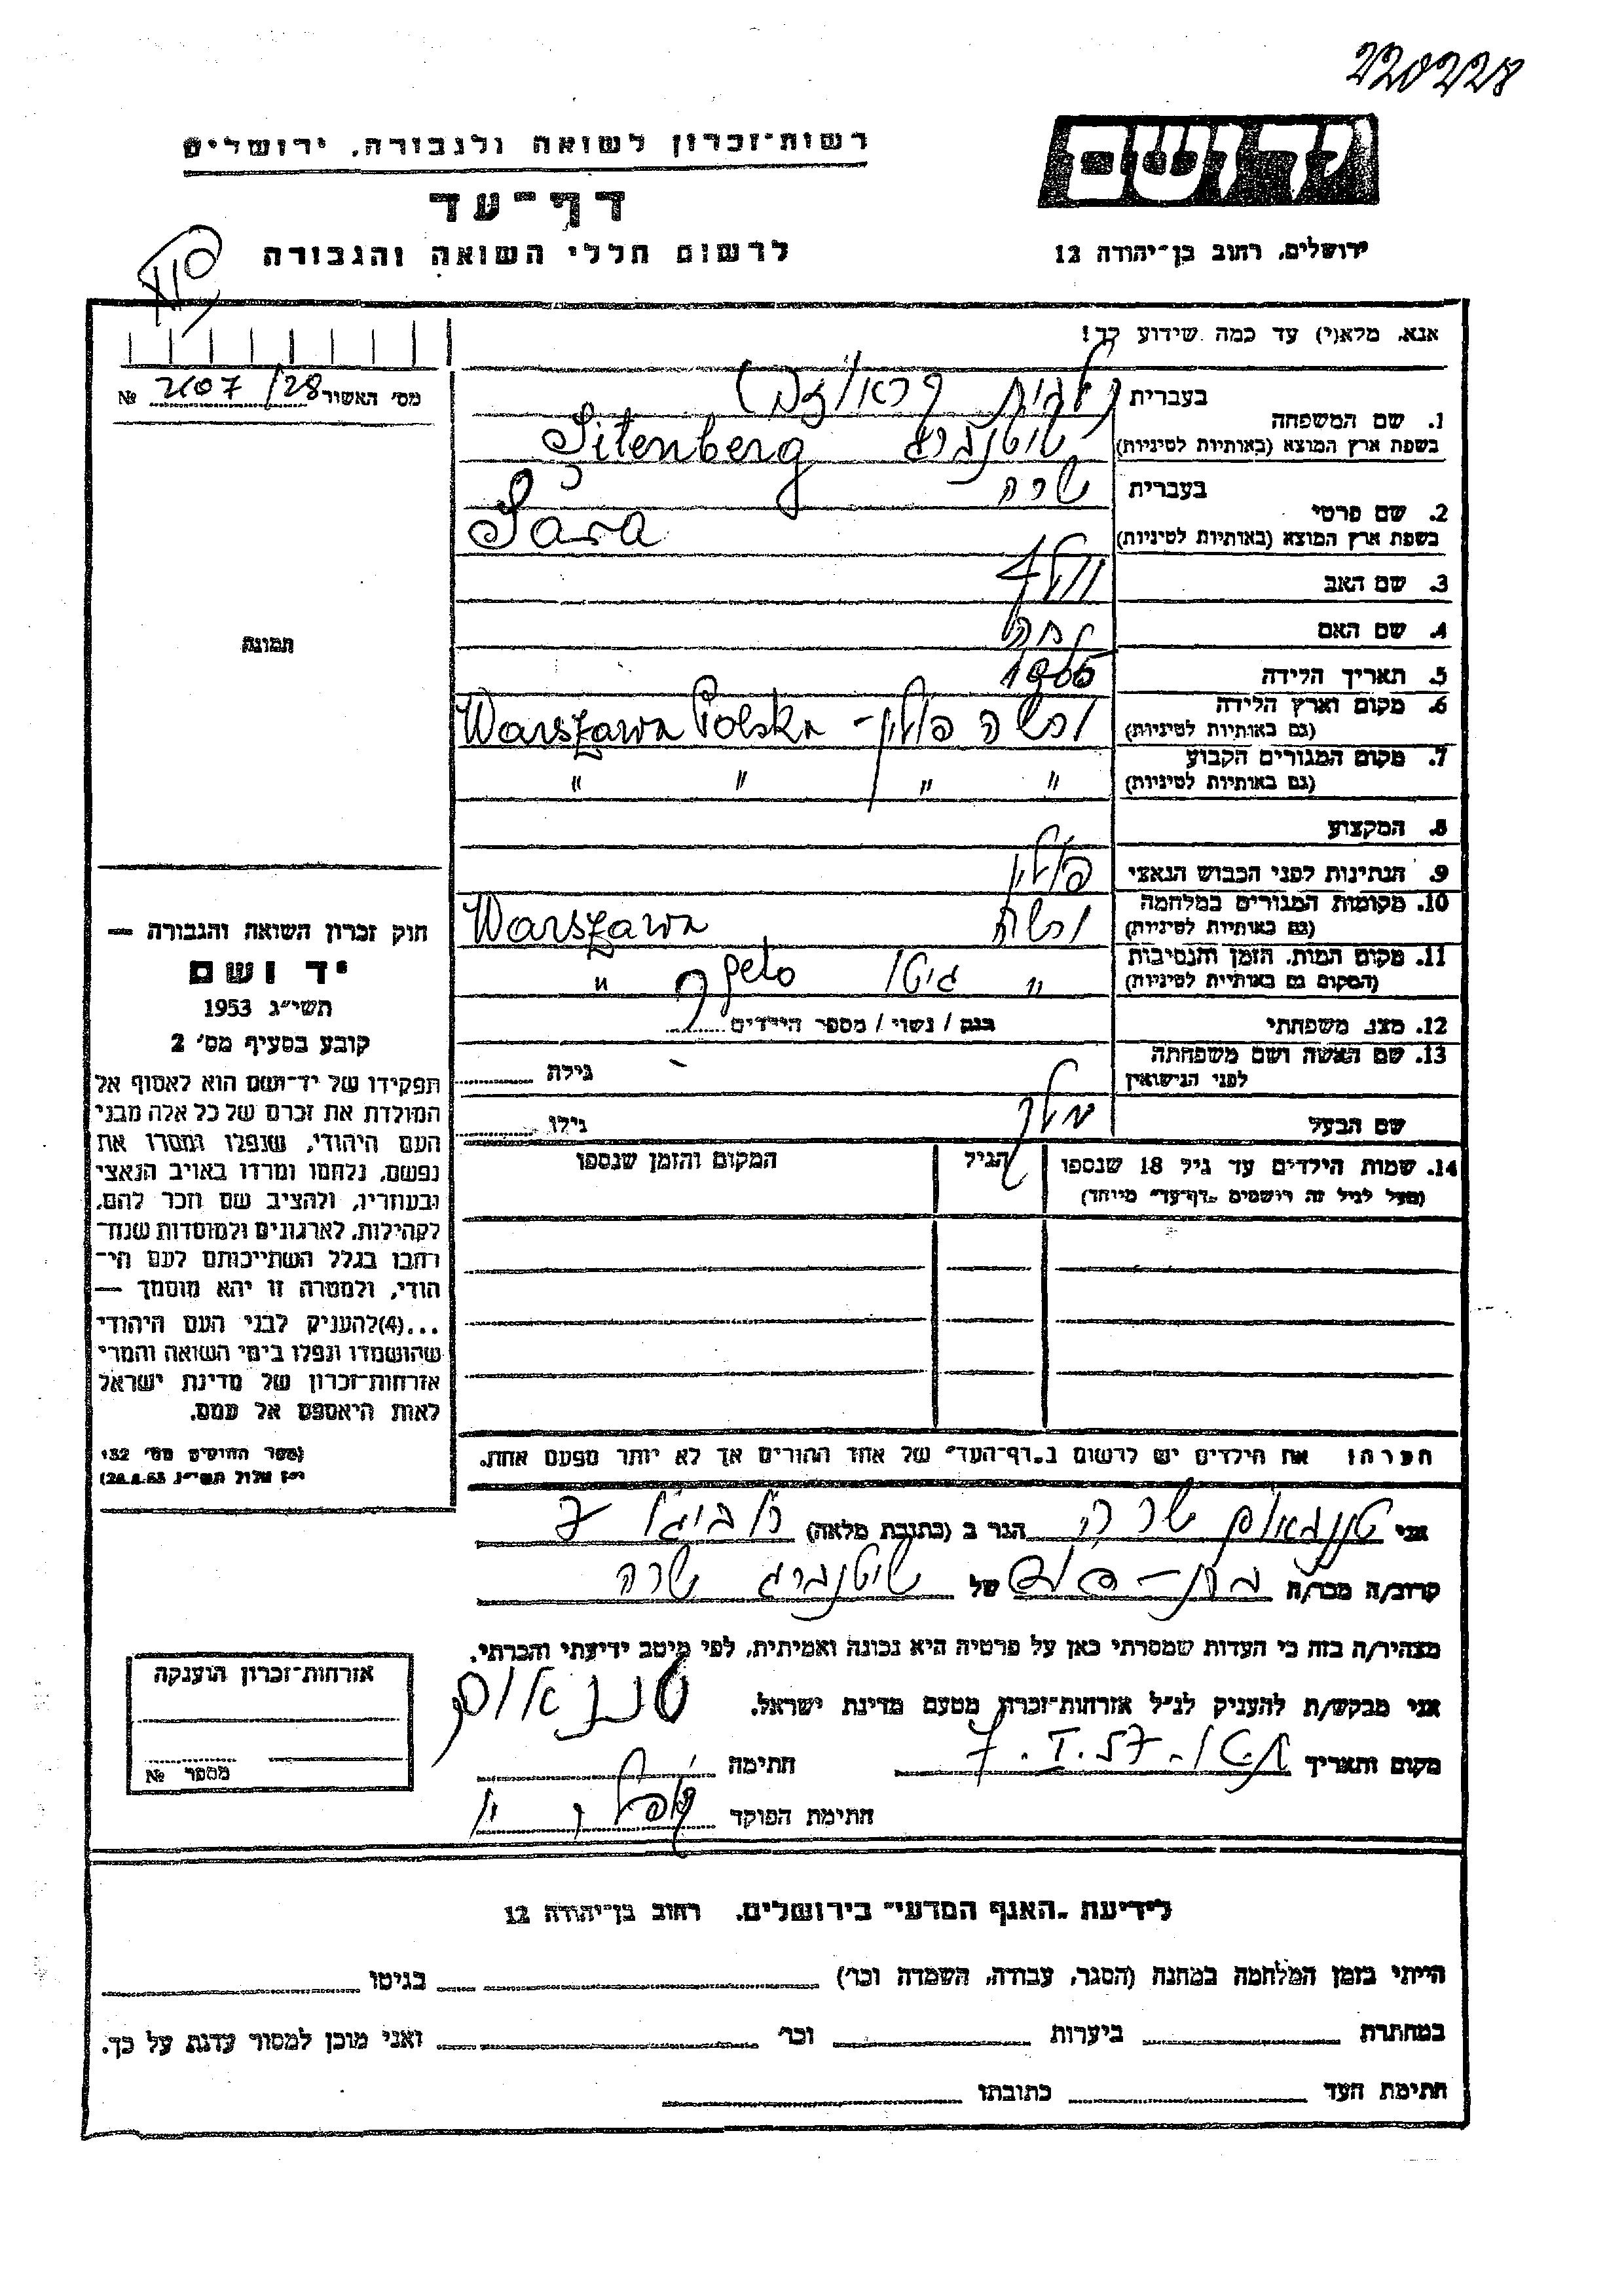 220228
יד ושם
רשות־זכרון לשואה ולגבורה, ירושלים
דף־עד
לרשום חללי השואה והגבורה
ירושלים, רחוב בן־יהודה 12
אנא, מלא(י) עד כמה שידוע לך!
מס׳ האשור 2107/28 №
1. שם המשפחה
בעברית
בשפת ארץ המוצא (באותיות לטיניות) שיטנברג Sitenberg
2. שם פרטי
בעברית שרה
בשפת ארץ המוצא (באותיות לטיניות) Sara
3. שם האב
4. שם האם
5. תאריך הלידה
6. מקום וארץ הלידה
(גם באותיות לטיניות) ורשה פולין - Warszawa Polska
7. מקום המגורים הקבוע
(גם באותיות לטיניות) " " " "
8. המקצוע
9. הנתינות לפני הכבוש הנאצי פולין
10. מקומות המגורים במלחמה
(גם באותיות לטיניות) Warszawa
11. מקום המות, הזמן והנסיבות
(המקום גם באותיות לטיניות) " גיטו geto "
12. מצב משפחתי רווק / נשוי / מספר הילדים
13. שם האשה ושם משפחתה
לפני הנישואין - גילה
שם הבעל גילו
14. שמות הילדים עד גיל 18 שנספו
(מעל לגיל זה רושמים "דף־עד" מיוחד)
הגיל
המקום והזמן שנספו
הערה: את הילדים יש לרשום ב"דף־העד" של אחד ההורים אך לא יותר מפעם אחת.
תמונה
חוק זכרון השואה והגבורה —
יד ושם
תשי״ג 1953
קובע בסעיף מס׳ 2
תפקידו של יד־ושם הוא לאסוף אל
המולדת את זכרם של כל אלה מבני
העם היהודי, שנפלו ומסרו את
נפשם, נלחמו ומרדו באויב הנאצי
ובעוזריו, ולהציב שם וזכר להם,
לקהילות, לארגונים ולמוסדות שנח־
רבו בגלל השתייכותם לעם הי־
הודי, ולמטרה זו יהא מוסמך —
...(4) להעניק לבני העם היהודי
שהושמדו ונפלו בימי השואה והמרי
אזרחות־זכרון של מדינת ישראל
לאות היאספם אל עמם.
(ספר החוקים מס׳ 132
י״ז אלול תשי״ג 28.8.53)
אני שרה הגר ב (כתובת מלאה)
קרוב/ה מכר/ה בת-דודה של שיטנברג שרה
מצהיר/ה בזה כי העדות שמסרתי כאן על פרטיה היא נכונה ואמיתית, לפי מיטב ידיעתי והכרתי.
אני מבקש/ת להעניק לנ״ל אזרחות־זכרון מטעם מדינת ישראל.
מקום ותאריך 7.I.57 חתימה
חתימת הפוקד
אזרחות־זכרון הוענקה
מספר №
לידיעת "האגף המדעי" בירושלים, רחוב בן־יהודה 12
הייתי בזמן המלחמה במחנה (הסגר, עבודה, השמדה וכו׳) בגיטו
במחתרת ביערות וכו׳ ואני מוכן למסור עדות על כך.
חתימת העד כתובתו